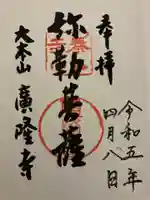 奉拝
令和五年
四月八日
弥勒菩薩
大本山
廣隆寺